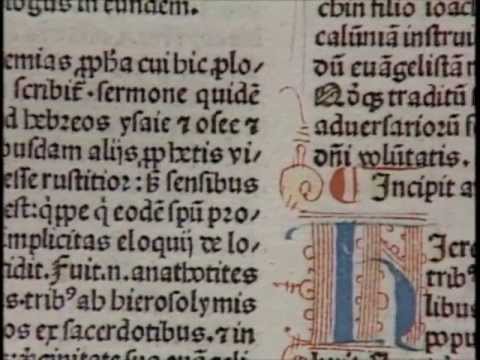 logus in eundem.
emias ꝓpha cui hic ꝓlo/
scribit᷑. sermone quidē
d hebreos ysaie ⁊ osee ⁊
busdam alijs ꝓphetis vi/
esse rusticior: sꝫ sensibus
est: qͥppe qͥ eodē spū pro/
implicitas eloquij de lo/
idit. Fuit.n. anathotites
s tribꝰ ab hierosolymis
os ex sacerdotibus. ⁊ in
chin filio ioac
calūniam instrui
dū euāgelistā
traditū
adversariorū s
dn̄i volūtatis.
Incipit
H
tribꝰ
libus
popu